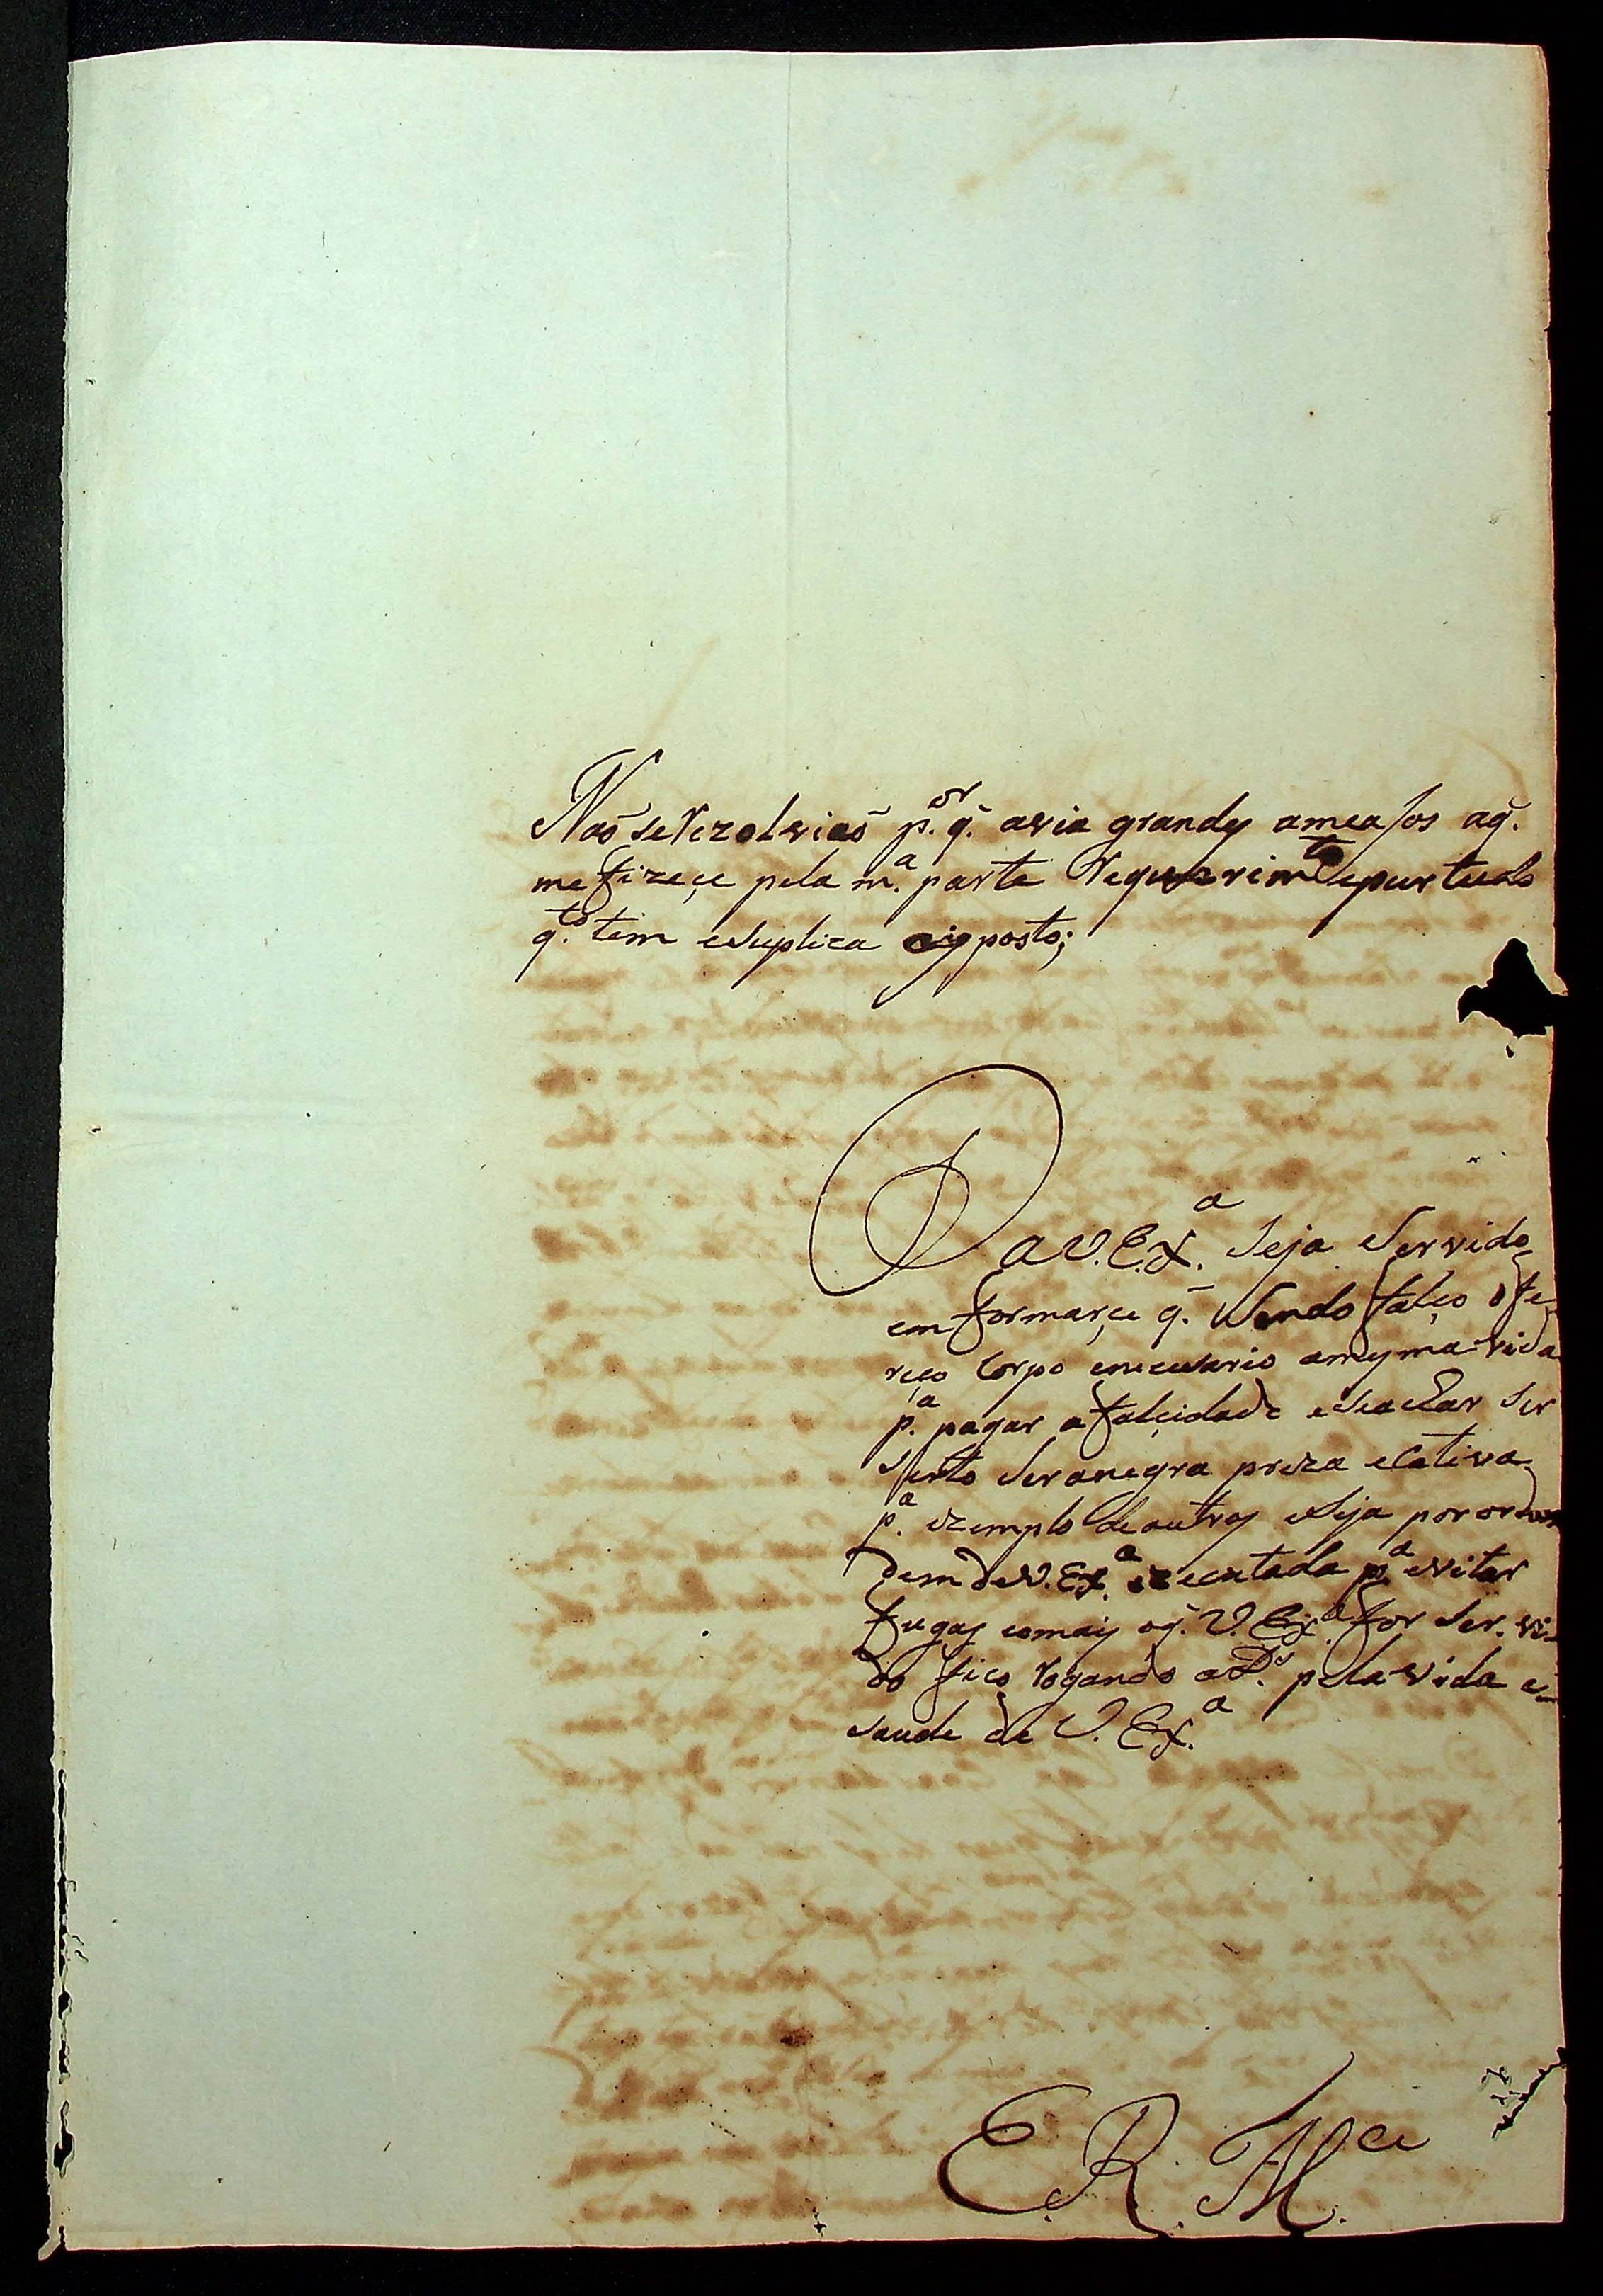 Naõ se Rezolviaõ p.or q̃. avia grandes ameasos aq̃.
me fizeçe pela m.a parte Requerim.to epur tudo
q.to tem eSuplica exposto;
P a V. Ex.a Seja Servido
emformarçe q̃. Sendo falço ofe-
reço Corpo eneceSario amesma vida
p.a pagar afalçidade eSeachar Ser
Serto Seranegra preza eCativa
p.a ezemplo deoutros eSeja poror
dem deV. Ex.a ezecutada p.a evitar
fugas comais oq̃. V. Ex.a for Ser. vi-
do fico Rogando aD.s pelavida e-
Saude de V. Ex.a
E. R. M.ce